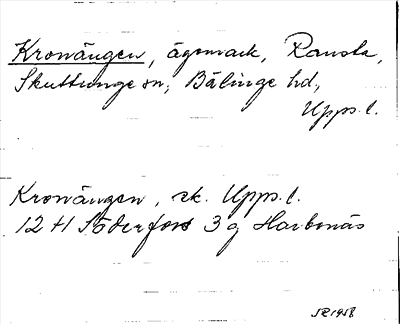 Kronängen, ägomark, Ransta,
Skuttunge sn, Bälinge hd,
Upps. l.
Kronängen, ek. Upps. l.
12 H Söderfors 3 g Harbonäs
SR 1958